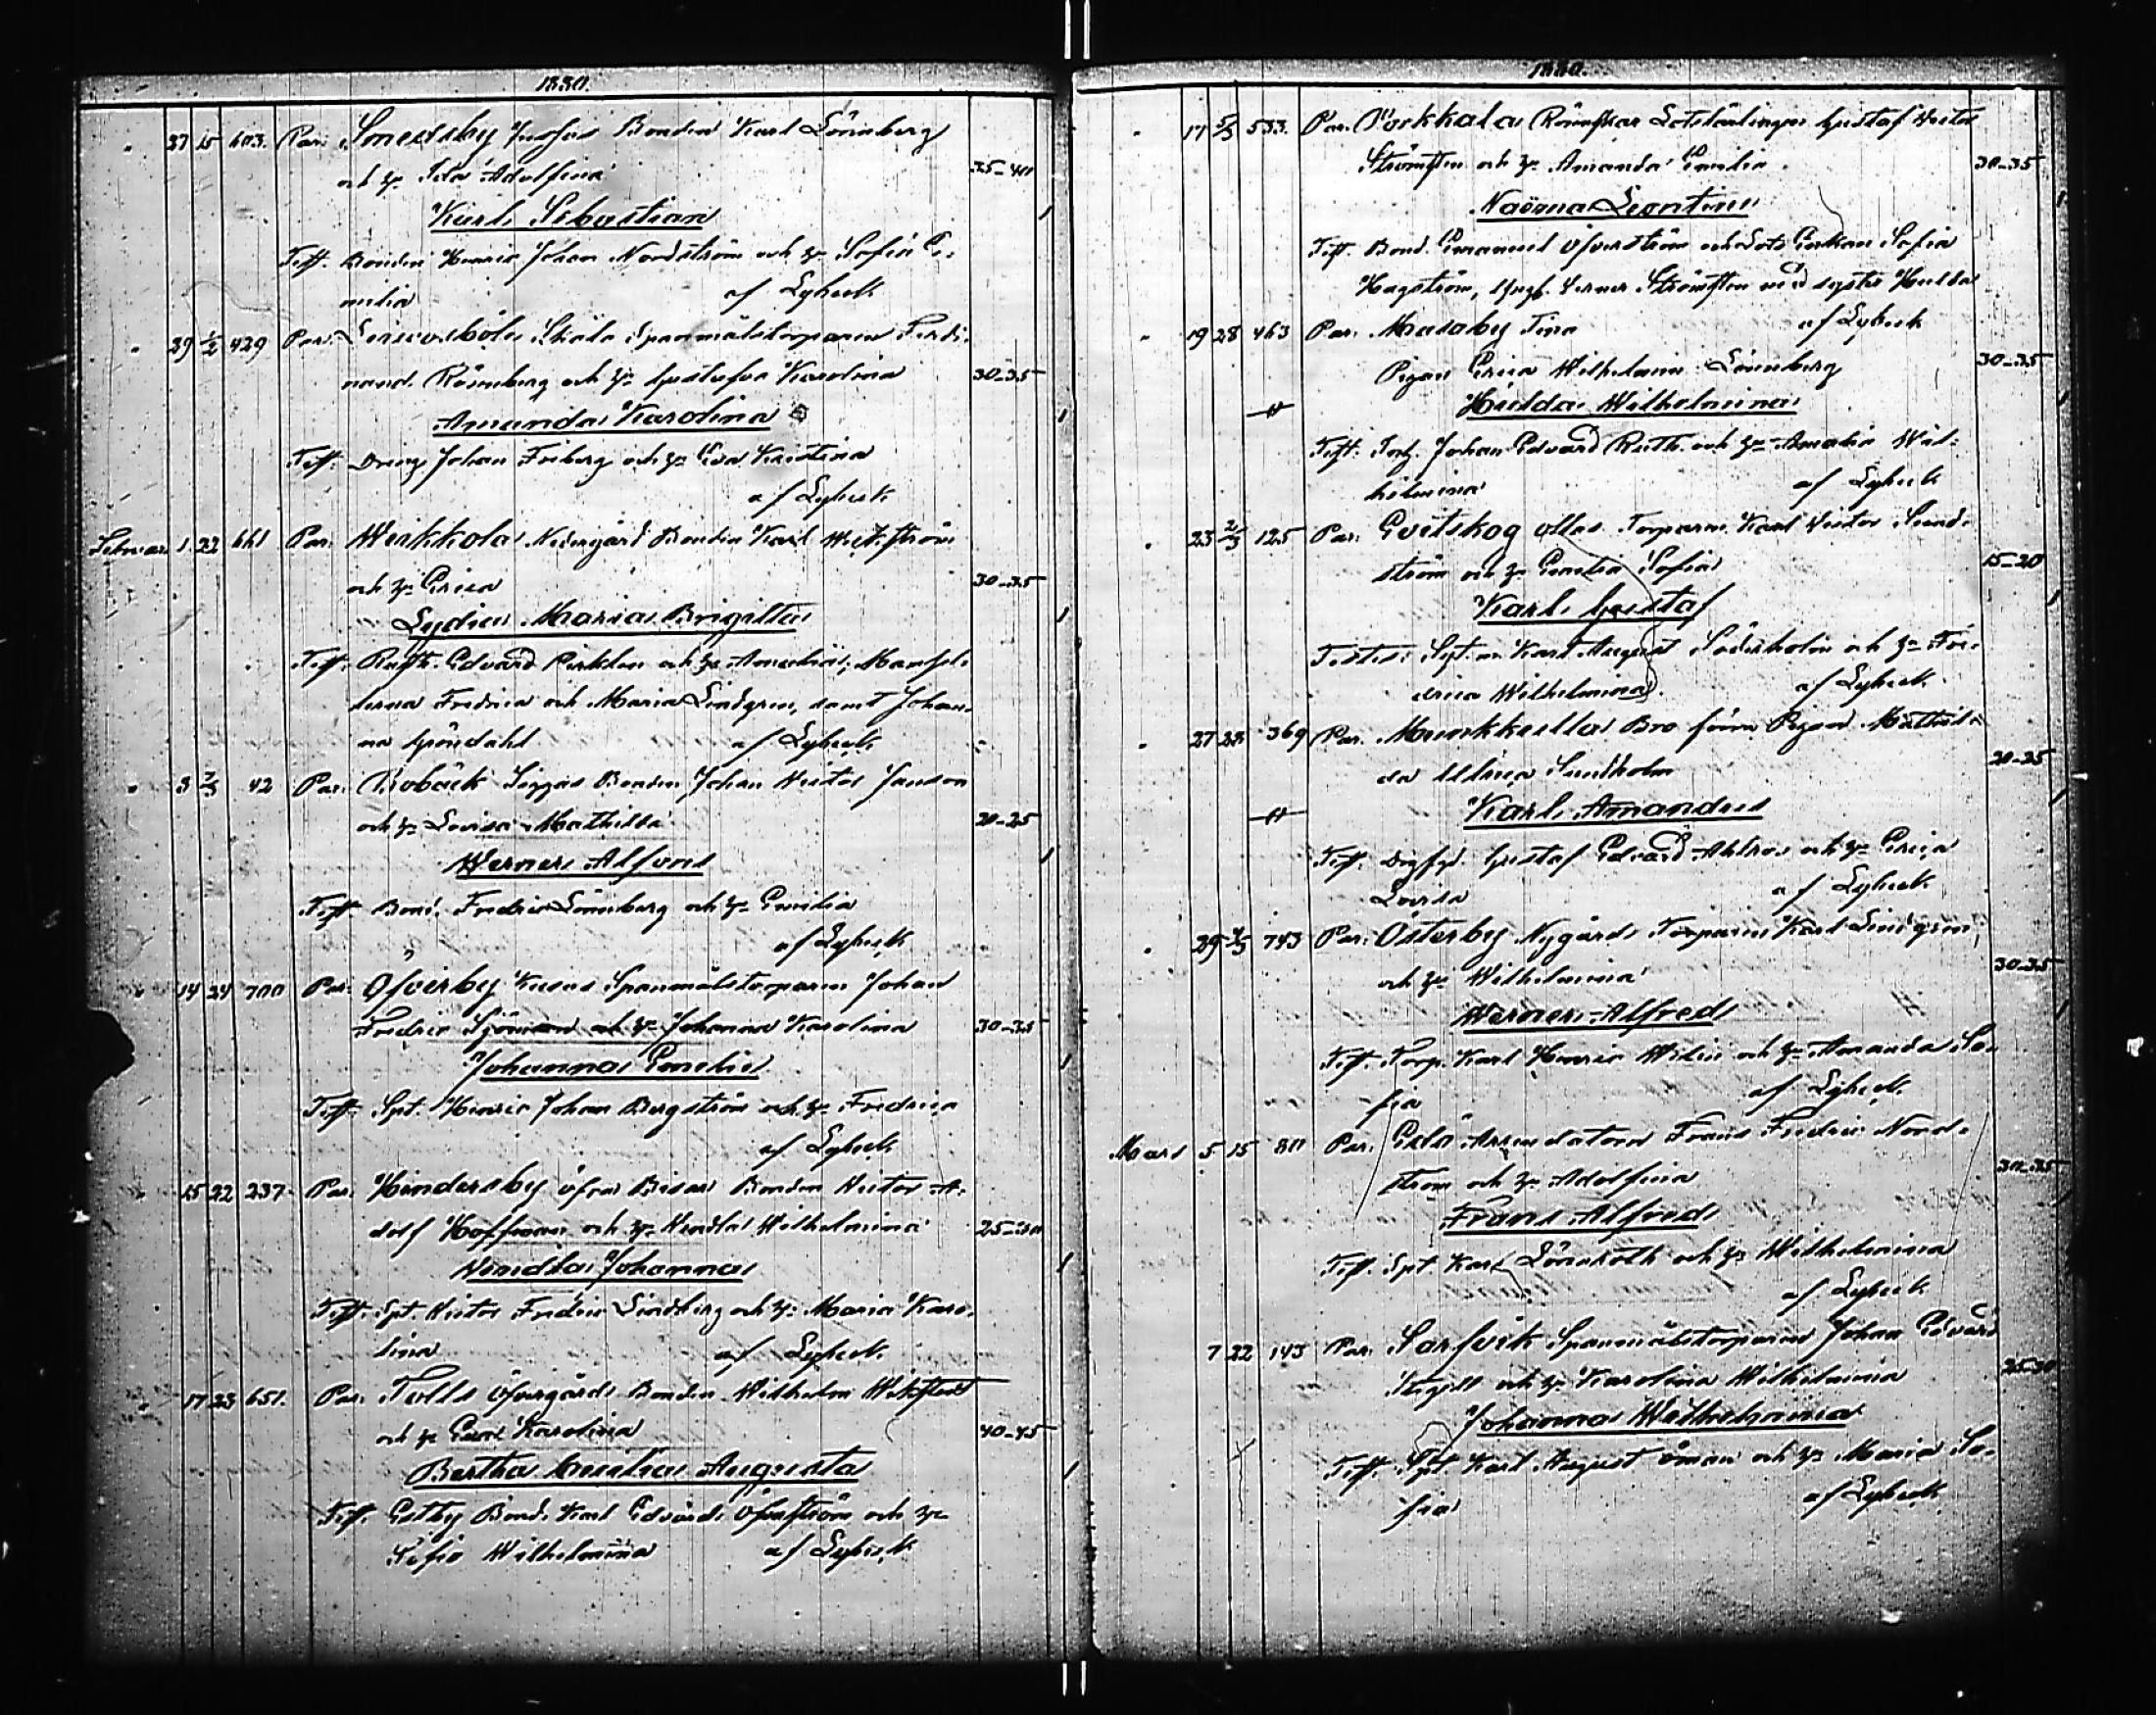 1880.
27 15 603. Par: Smedsby Jusfas Bonden Karl Lönnberg
och h: Ida Adolfina 35-40
Karl Sebastian
Test. Bonden Henric Johan Nordström och h: Sofia E-
milia af Lybeck
29 1/2 429 Par: Spanmålstorparen Ferdi-
nand Rönnberg och h: Gustafva Karolina 30-35
Amanda Karolina
Test: Dreng Johan Friberg och h: Eva Kristina
af Lybeck
Februari 1 22 661 Par: Werkkola Nedergård Bonden Karl Wikström
och h: Erica 30-35
Lydia Maria Brigitta
Test: Edvard och h: Amalia, Mamsel-
lerna Fredrica och Maria Lindgren, samt Johan-
na Gröndahl af Lybeck
3 7/3 42 Par: Bobäck Siggas Bonden Johan Victor Janson
och h: Lovisa Mathilda 20-25
Werner Alfons
Test Bond. Fredric Lönnberg och h: Emilia
af Lybeck
14 24 700 Par: Öfverby Kusas Spanmålstorparen Johan
Fredric Sjöman och h: Johanna Karolina 30-35
Johanna Emelie
Test: Spt. Henric Johan Bergström och h: Fredrica
af Lybeck
15 22 237 Par: Hindersby öfver Bisas Bonden Victor A-
dolf Hoffman och h: Wendla Wilhelmina 25-30
Wendla Johanna
Test: Spt. Victor Fredric Lindberg och h: Maria Karo-
lina af Lybeck
17 23 651. Par: Tolls Öfvergårds Bonden Wilhelm Wikstedt
och h: Eva Karolina 40-45
Bertha Cecilia Augusta
Test. Estby Bond. Karl Edvard Öfverström och h:
Sofia Wilhelmina af Lybeck
1880.
17 5/3 533. Par: Porkkala Rönnskär Lotslärlingen Gustaf Victor
Strömsten och h: Amanda Emilia 30-35
Naëma Leontine
Test. Bond. Emanuel Öfverström och Lots Enkan Sofia
Hagström, Yngl. Verner Strömsten med syster Hulda
af Lybeck
19 28 463 Par: Masaby Tina
Pigan Erica Wilhelmina Lönnberg 30-35
Hulda Wilhelmina
Test: Torp. Johan Edvard Ruth och h: Amalia Wil-
helmina af Lybeck
23 2/3 125 Par: Evitskog Ollas Torparen Karl Victor Sund-
ström och h: Emilia Sofia 15-20
Karl Gustaf
Testes: Spt.n Karl August Söderholm och h: Fre-
drica Wilhelmina. af Lybeck
27 28 369 Par: Munkkulla Bro förra Pigan Mathil-
da Ulrica Sundholm 20-25
Karl Amandus
Test. Gustaf Edvard Ahlros och h: Erica
Lovisa af Lybeck
29 4/3 743 Par: Österby Nygårds Torparen Karl Lindgren,
och h: Wilhelmina 30-35
Werner Alfred
Test. Torp. Karl Henric Welin och h: Amanda So-
fia af Lybeck
Mars 5 15 80 Par: Eklö Arrendatorn Frans Fredric Nord-
ström och h: Adolfina 30-35
Frans Alfred
Test. Spt. Karl Lönnroth och h: Wilhelmina
af Lybeck
7 22 143 Par: Sarfvik Spanmålstorparen Johan Edvard
och h: Karolina Wilhelmina 25-30
Johanna Wilhelmina
Test. Spt Karl August Öman och h: Maria So-
fia af Lybeck